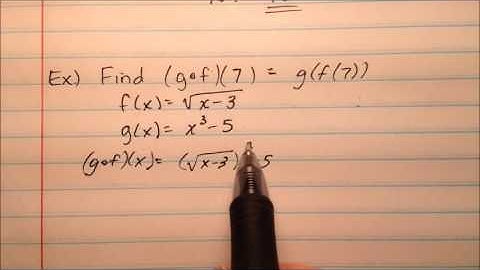 Ex) Find (g∘f)(7) = g(f(7))
f(x) = √(x-3)
g(x) = x³-5
(g∘f)(x) = (√(x-3)) 5